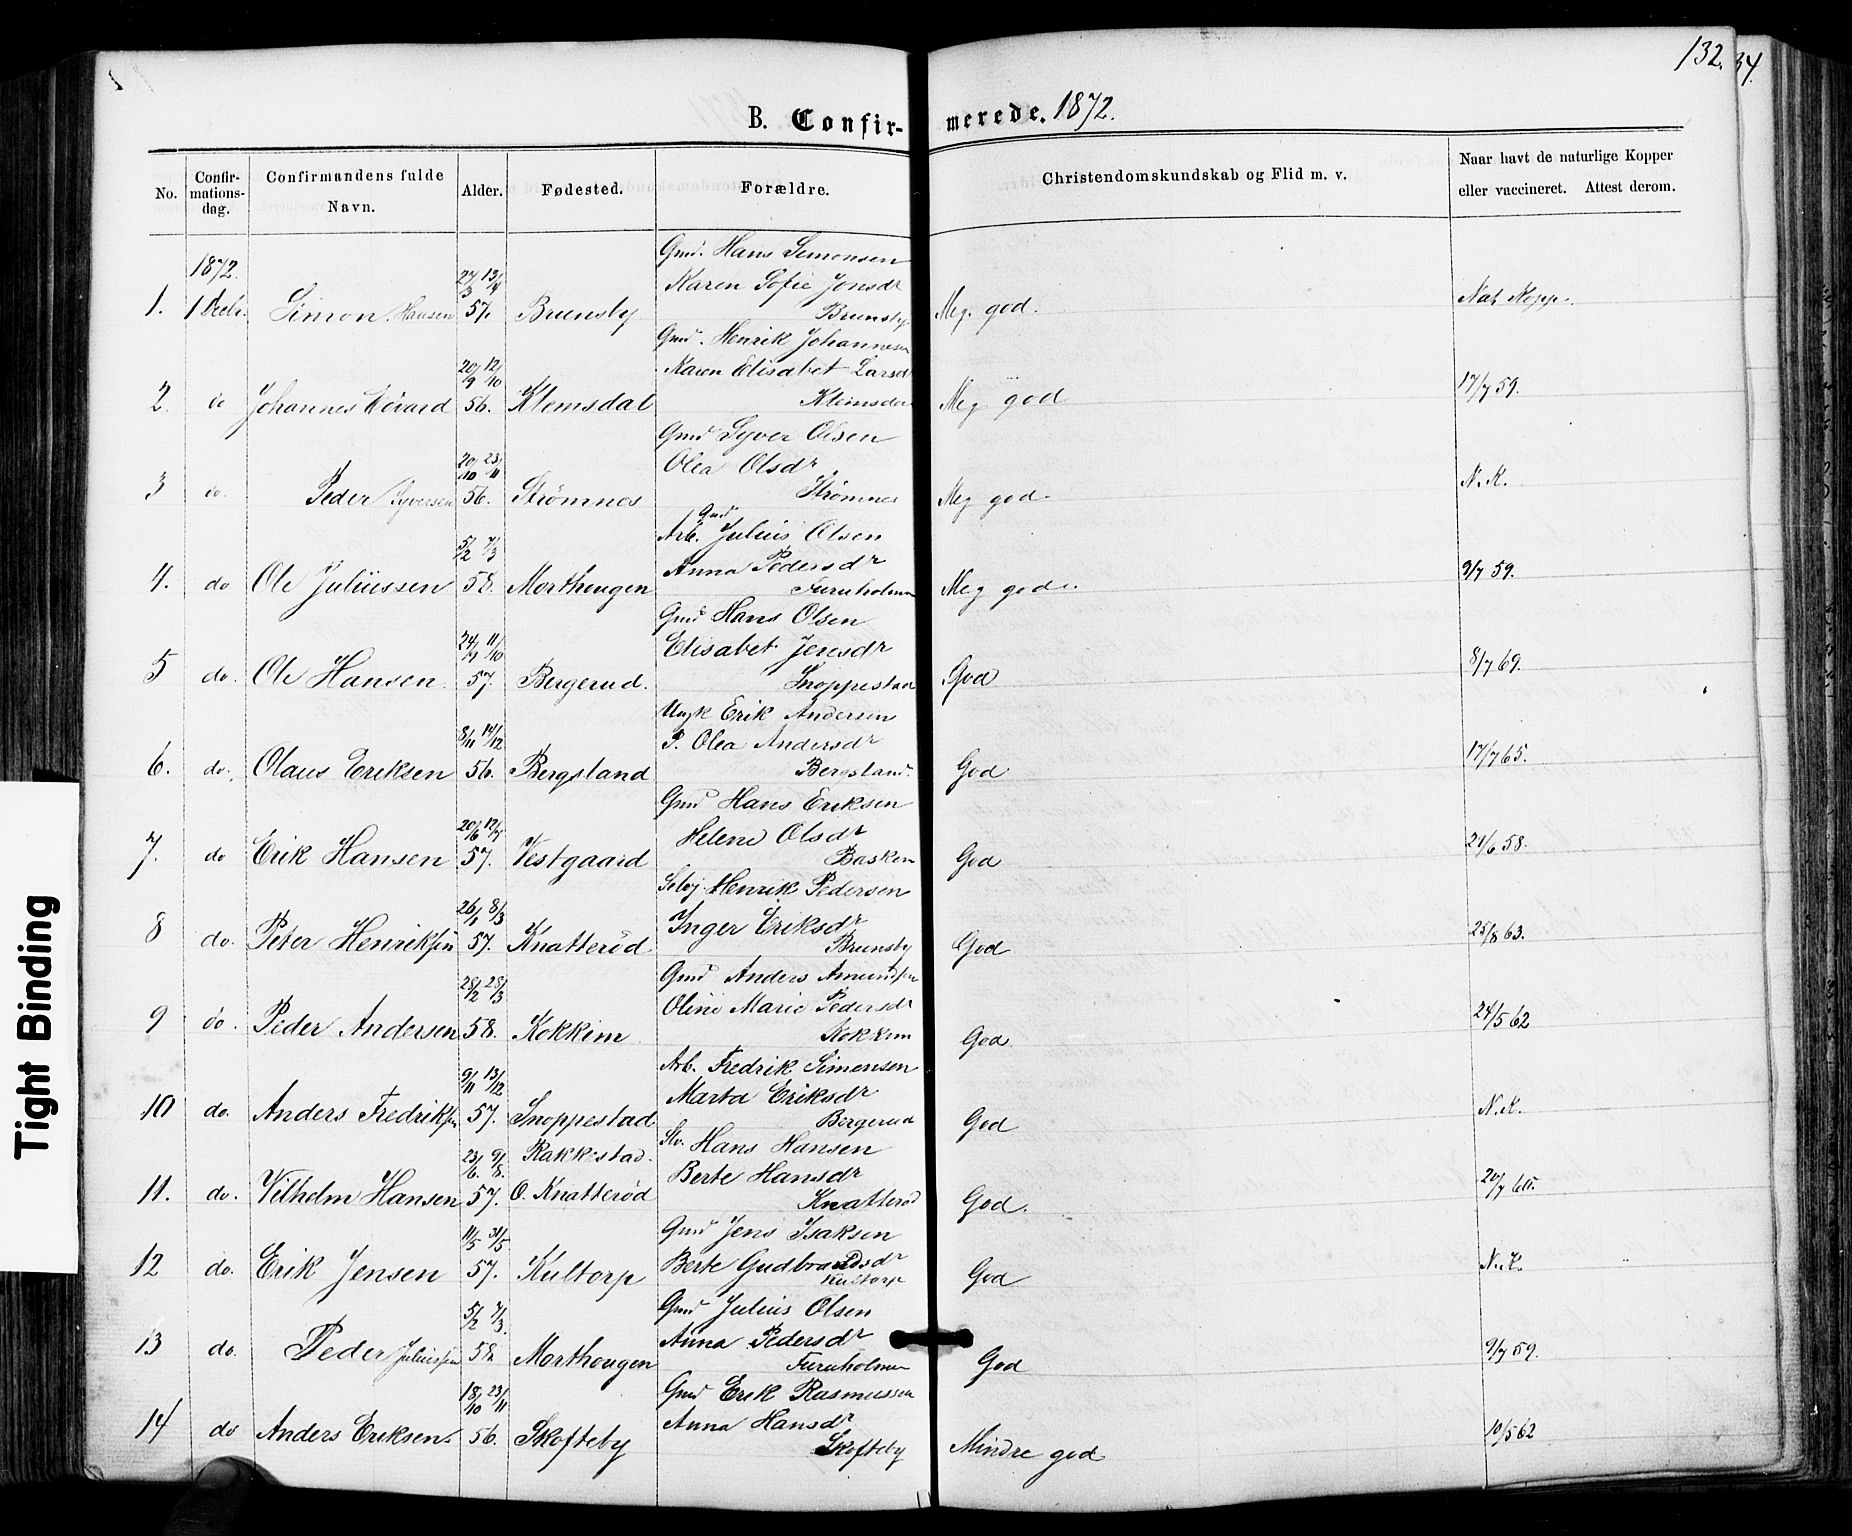 132.
34.
B. Confir- merede. 1872.
No. Confir-mations-dag. Confirmandens fulde Navn. Alder. Fødested. Forældre. Christendomskundskab og Flid m. v. Naar havt de naturlige Kopper eller vaccineret. Attest derom.
1872.
Gmd. Hans Simonsen
27/3 13/4 Karen Sofie Jonsdr
1. 1 Octbr. Simon Hansen 57. Brunsby Brunsby Meg. god. Nat. Kopp.
Gmd. Henrik Johannesen
20/9 12/10 Karen Elisabet Larsd
2. do Johannes Edvard 56. Klemsdal Klemsdal Meg god. 17/7 59.
Gmd Syver Olsen
20/10 23/11 Olea Olsdr
3 do. Peder Syversen 56. Strømnes Strømnes Meg god. N. K.
Gmd
Arb. Julius Olsen
5/2 7/3 Anna Pedersdr
4. do Ole Juliussen 58. Morthougen Furuholmen Meg god. 9/7 59.
Gmd Hans Olsen
24/9 11/10 Elisabet Jensdr
5 do. Ole Hansen. 57. Bergerud. Snoppestad God 8/7 69.
Ungk Erik Andersen
8/11 14/12 P. Olea Andersdr
6. do. Olaus Eriksen 56. Bergsland Bergsland. God 17/7 65.
Gmd Hans Eriksen
20/6 12/7 Helene Olsdr
7. do Erik Hansen 57. Vestgaard Basken God 21/6 58.
Selvej. Henrik Pedersen
26/1 8/3 Inger Eriksdr
8 do. Peter Henriksen 57. Knatterød Brunsby God 25/8 63.
Gmd Anders Amundsen
28/2 28/3 Oline Marie Pedersdr
9 do. Peder Andersen 58. Kokkim Kokkim God 24/5 62
Arb. Fredrik Simensen
9/11 13/12 Marta Eriksdr
10 do. Anders Fredriksen 57. Snoppestad Bergerud God N. K.
Slv. Hans Hansen
23/6. 9/8. Rakkestad. Berte Hansdr
11. do. Vilhelm Hansen 57. O. Knatterød Knatterød God. 20/7 60.
Gmd Jens Isaksen
11/5 31/5 Berte Gudbrandsdr
12 do. Erik Jensen 57. Kultorp Kultorp God N. K.
Gmd Julius Olsen
5/2 7/3. Anna Pedersdr
13 do. Peder Juliussen 58 Morthougen Furuholmen God 9/7 59.
Gmd Erik Rasmussen
18/10 23/11 Anna Hansdr
14 do Anders Eriksen 56. Skofteby Skofteby Mindre god 10/5 62
Tight Binding